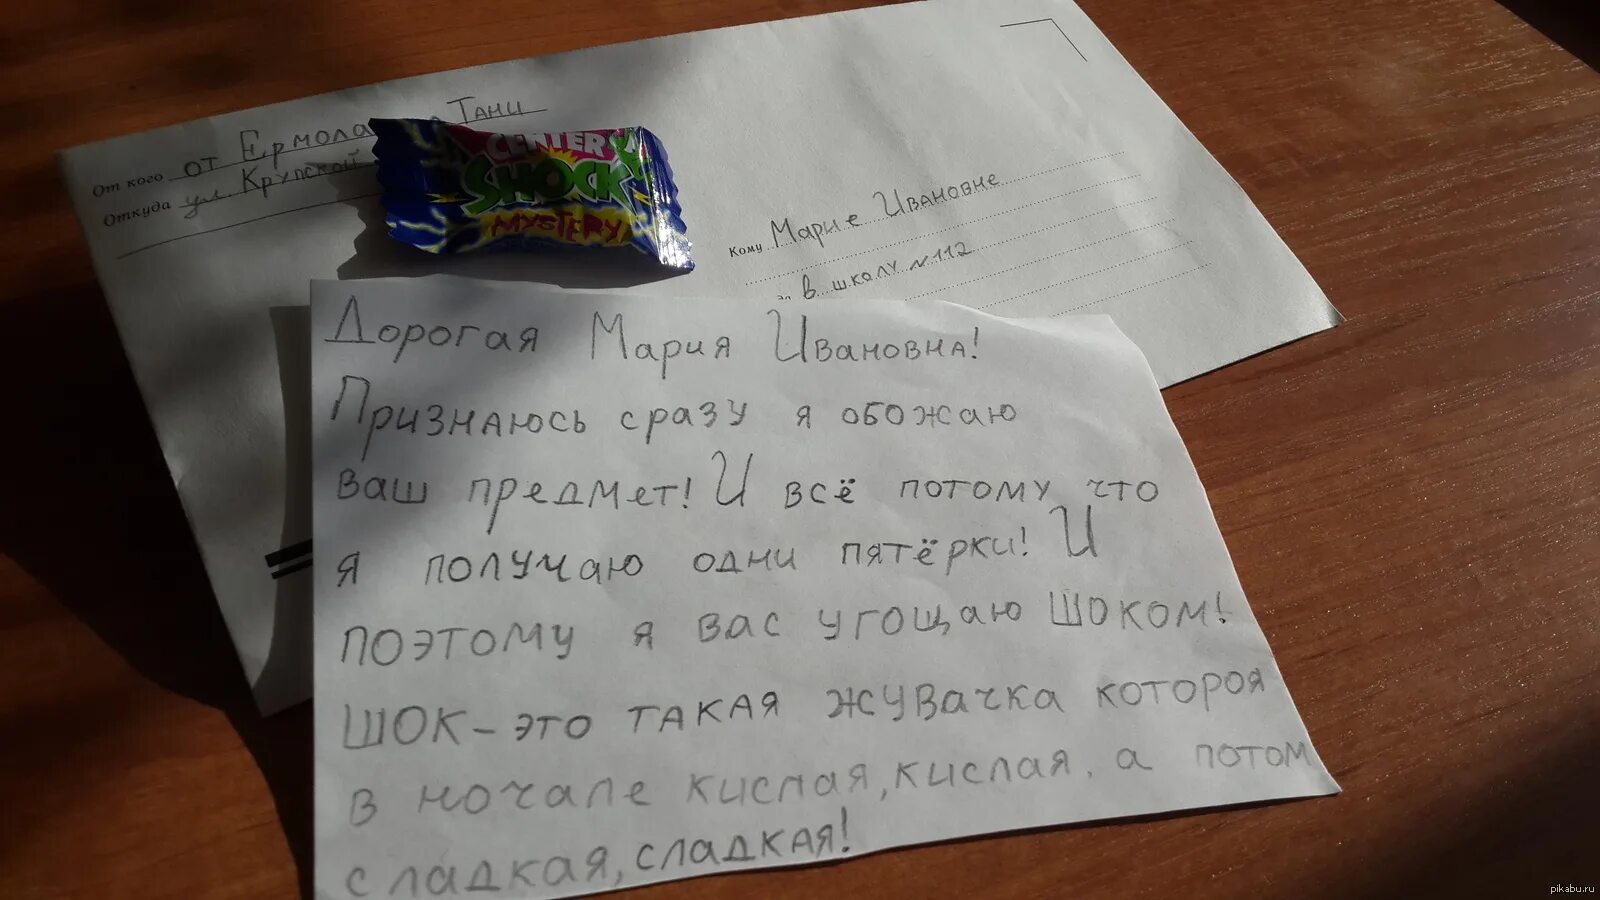 От кого от Ермола Тани
Откуда ул. Крупской
CENTER
SHOCK
MYSTERY
Кому Марие Ивановне
в школу №112
Дорогая Мария Ивановна!
Признаюсь сразу я обожаю
ваш предмет! И всё потому что
я получаю одни пятёрки! И
поэтому я вас угощаю шоком!
Шок-это такая жувачка котороя
в ночале кислая, кислая, а потом
сладкая, сладкая!
pikabu.ru